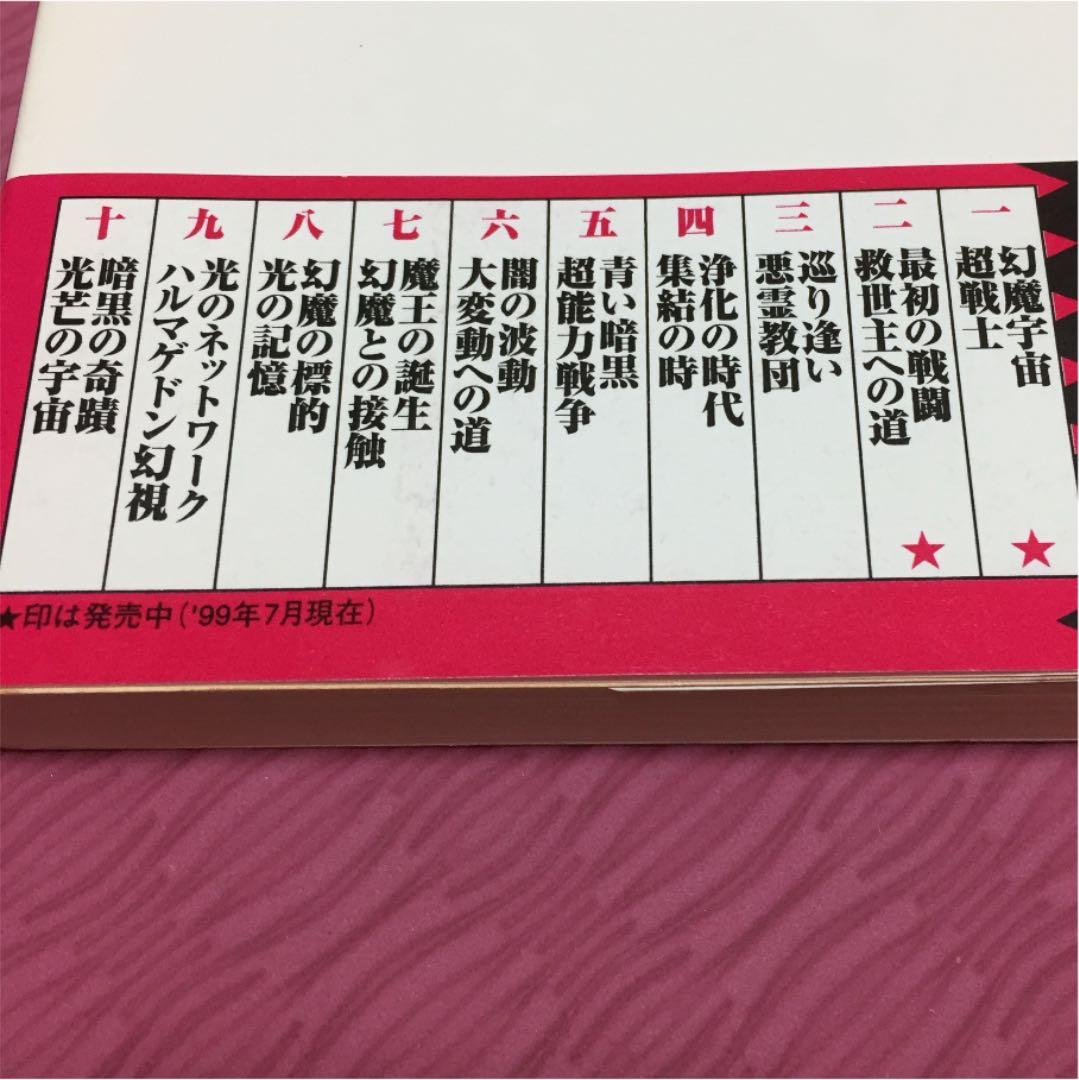 一
幻魔宇宙
超戦士
★
二
最初の戦闘
救世主への道
★
三
巡り逢い
悪霊教団
四
浄化の時代
集結の時
五
青い暗黒
超能力戦争
六
闇の波動
大変動への道
七
魔王の誕生
幻魔との接触
八
幻魔の標的
光の記憶
九
光のネットワーク
ハルマゲドン幻視
十
暗黒の奇蹟
光芒の宇宙
★印は発売中('99年7月現在)